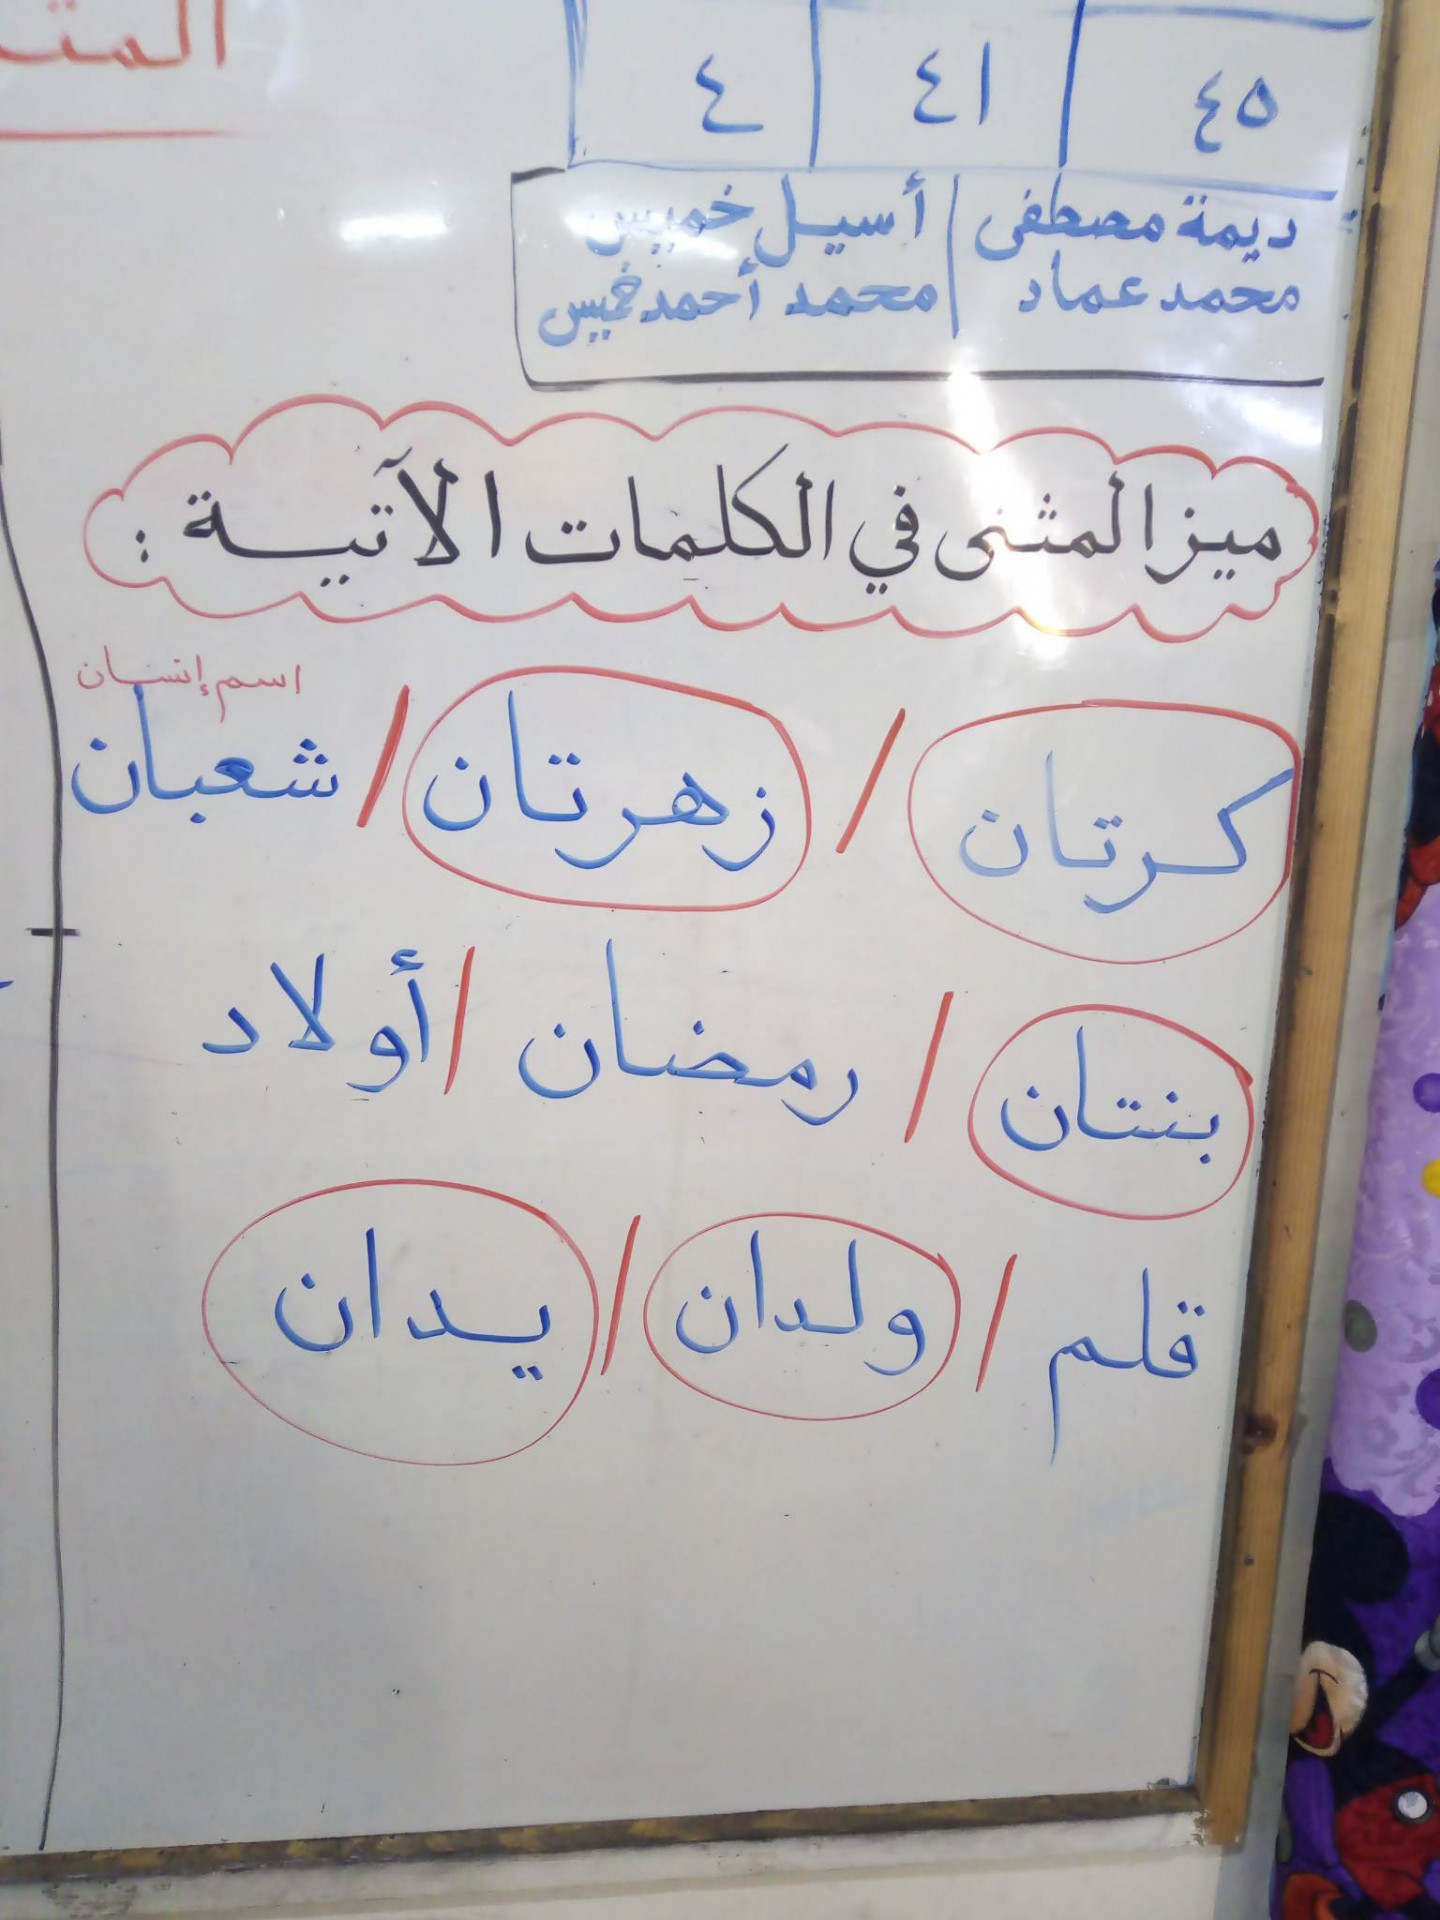 المثن
٤٥ ٤١ ٤
ديمة مصطفى / أسيل خميس
محمد عماد / محمد أحمد خميس
ميز المثنى في الكلمات الآتية :
اسم إنسان
كرتان / زهرتان / شعبان
بنتان / رمضان / أولاد
قلم / ولدان / يدان